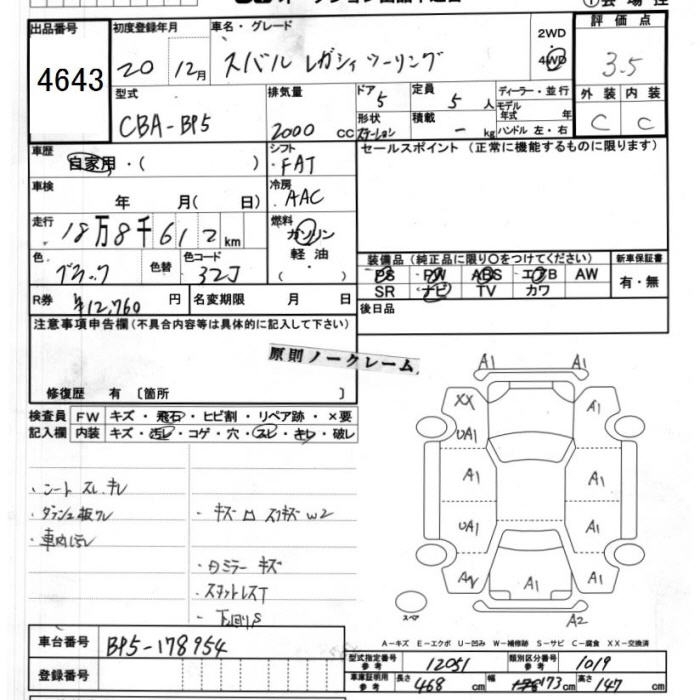 出品番号
4643
初度登録年月
20 12月
車名・グレード
スバル レガシィツーリング
2WD
4WD
評価点
3.5
型式
CBA-BP5
排気量
2000 cc
ドア
5
定員
5 人
形状
ステーション
積載
- kg
ディーラー・並行
モデル
年式 年
ハンドル 左・右
外装 内装
C C
車歴
自家用・( )
シフト
FAT
セールスポイント (正常に機能するものに限ります)
車検
年 月( 日)
冷房
AAC
走行
18万8千612km
燃料
ガソリン
軽油
色
ブラック
色替
色コード
32J
装備品 (純正品に限り○をつけてください)
新車保証書
PS PW ABS エアB AW
有・無
SR ナビ TV カワ
R券
¥12,760 円
名変期限 月 日
後日品
注意事項申告欄 (不具合内容等は具体的に記入して下さい)
原則ノークレーム
修復歴 有 〔箇所 〕
検査員
記入欄
FW キズ・飛石・ヒビ割・リペア跡・×要
内装 キズ・汚レ・コゲ・穴・スレ・キレ・破レ
・シート スレ.キレ
・キズ ロ スリキズ W2
・カミラー キズ
・下回りS
A1 A1
XX A1
UA1
A1 A1 A1
UA1 A1
AW A1 A1
A2
スペア
A-キズ E-エクボ U-凹み W-補修跡 S-サビ C-腐食 XX-交換済
車台番号
BP5-178954
登録番号
型式指定番号
参考
12051
類別区分番号
参考
1019
車庫証明用
参考
長さ 468 cm
幅 173 cm
高さ 147 cm